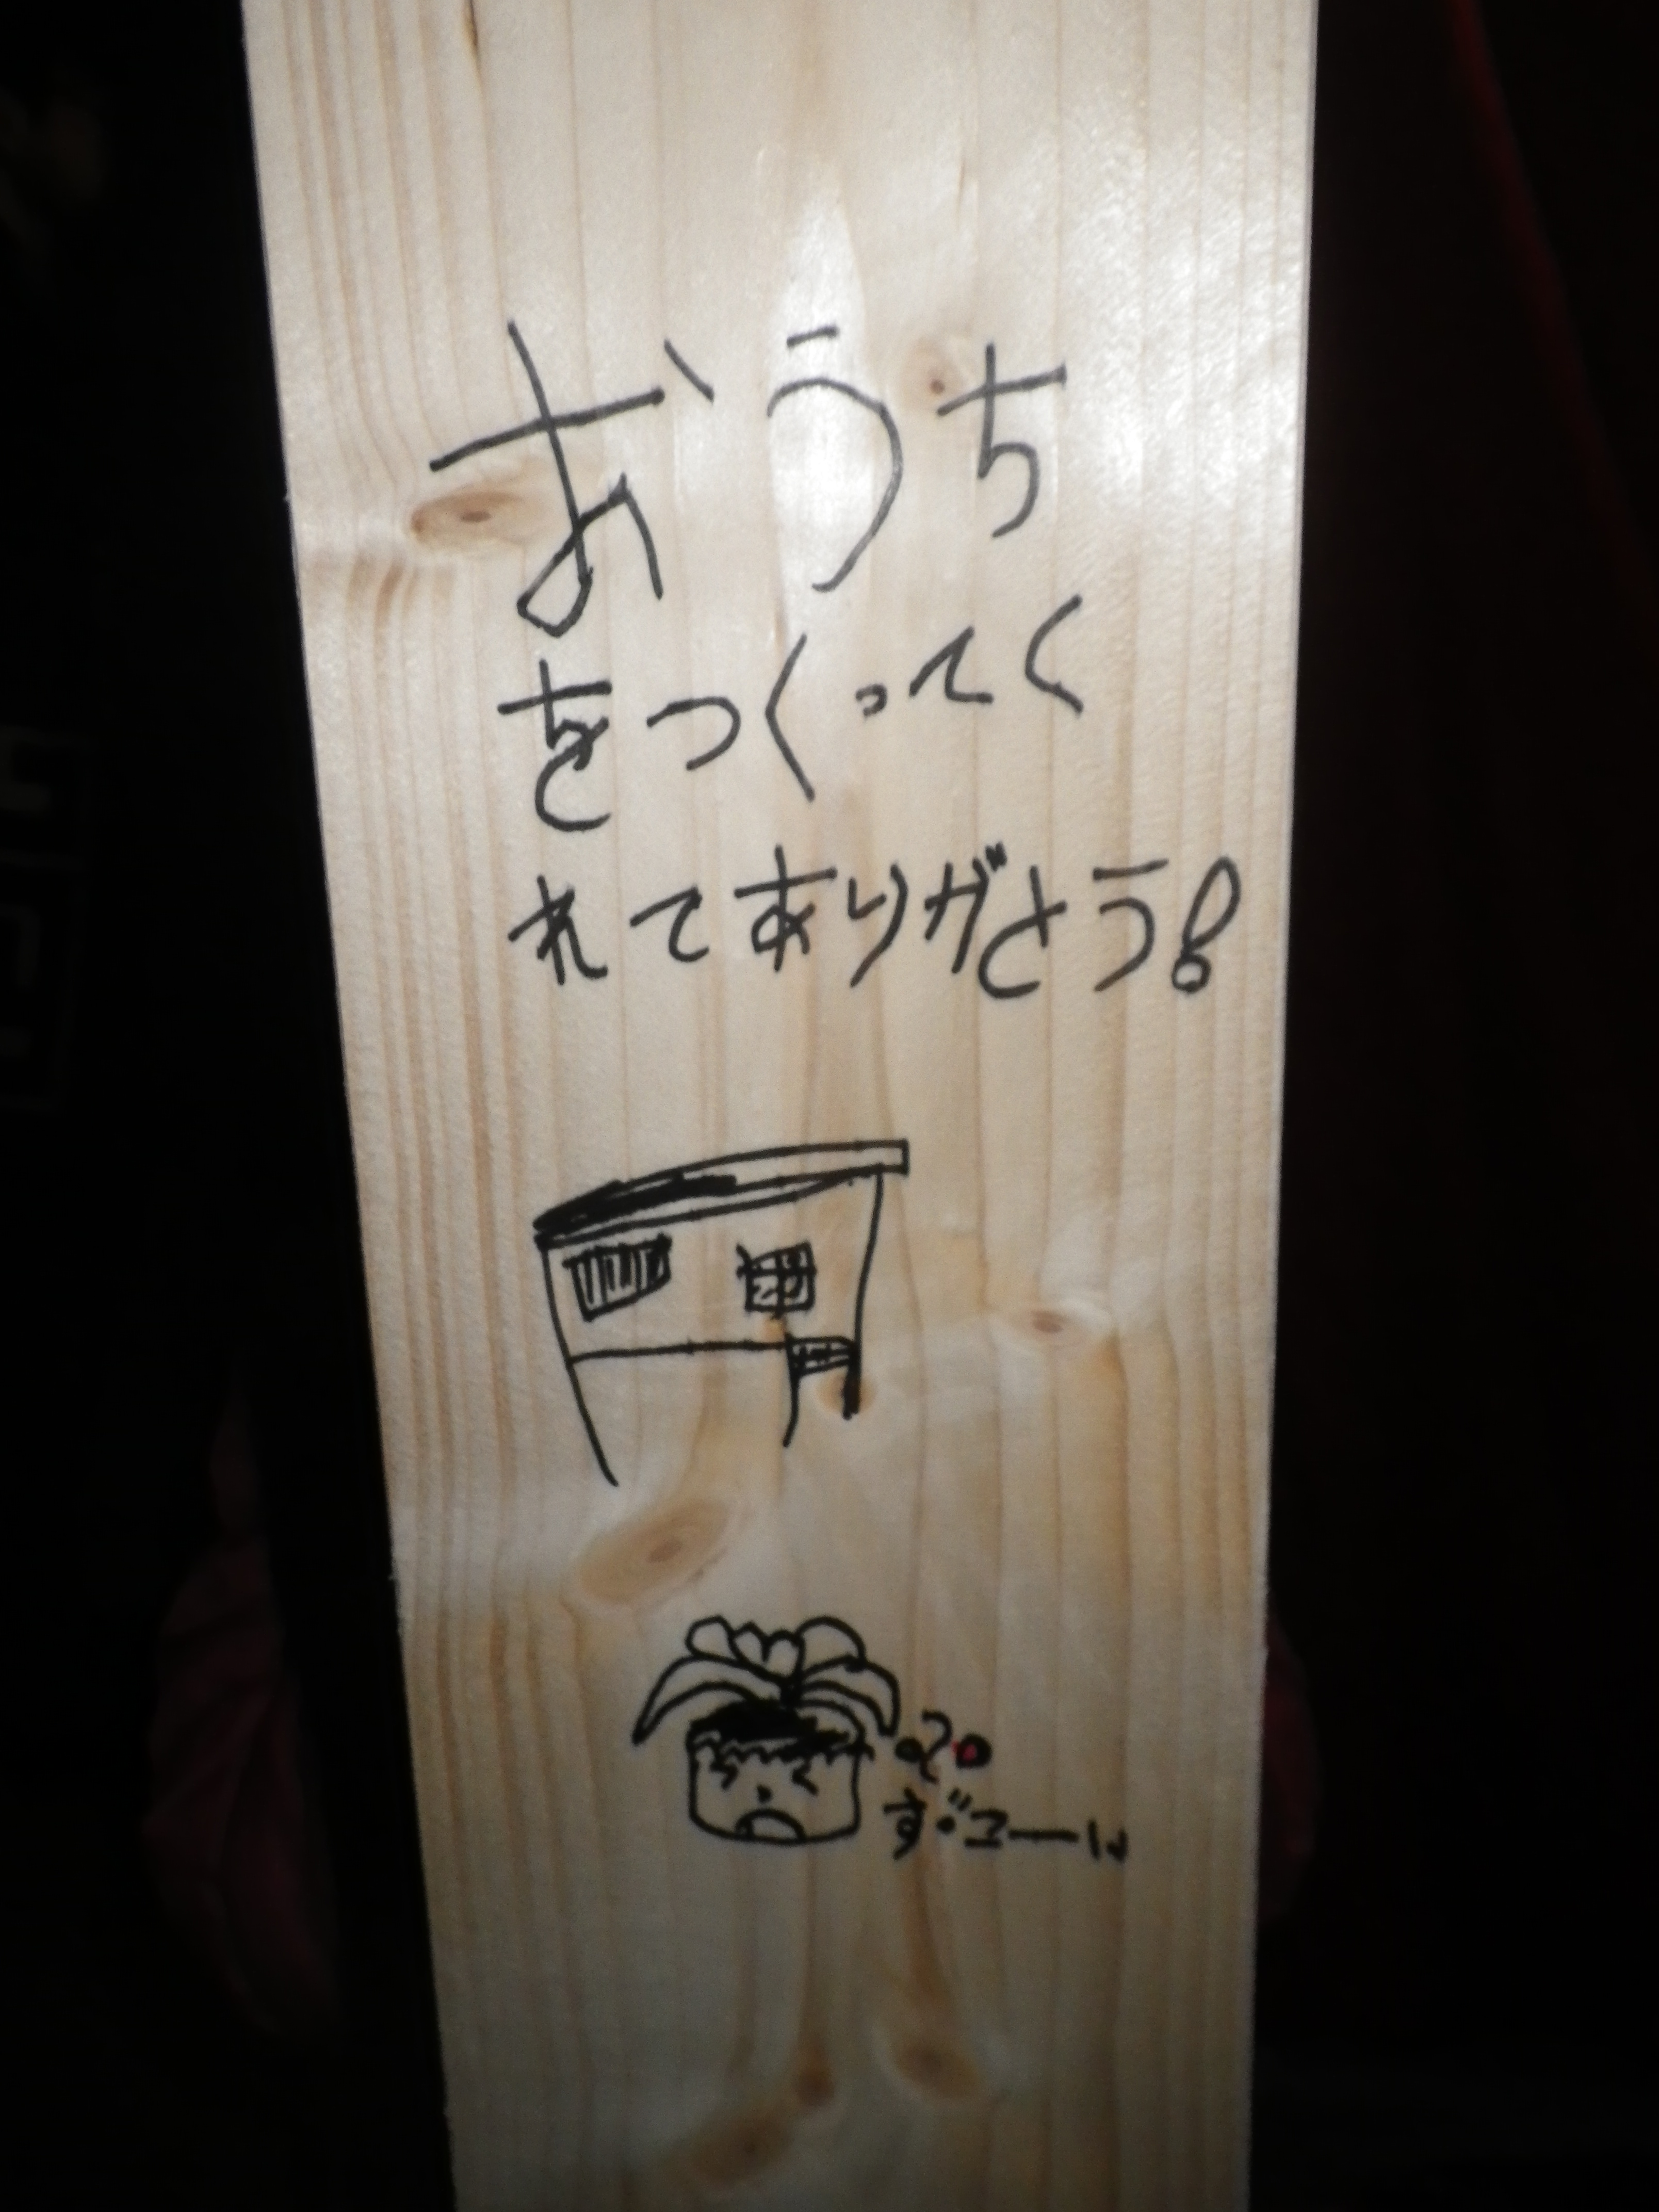 おうち
をつくってく
れてありがとう!